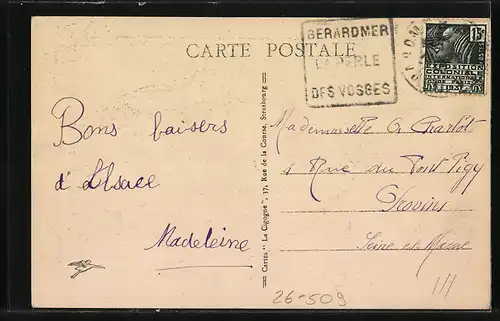 CARTE POSTALE
GERARDMER
LA PERLE
DES VOSGES
15c
POSTES
EXPOSITION
COLONIALE
INTERNATIONALE
Bons baisers
d'Alsace
Madeleine
Cartes "La Cigogne", 17, Rue de la Course, Strasbourg
Mademoiselle G Charlot
Rue du Pont Pigy
Provins
Seine et Marne
26-509